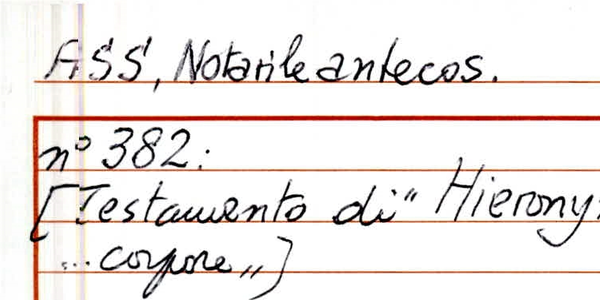 ASS, Notarile antecos.
n° 382:
[Testamento di "Hierony
... corpore,,]